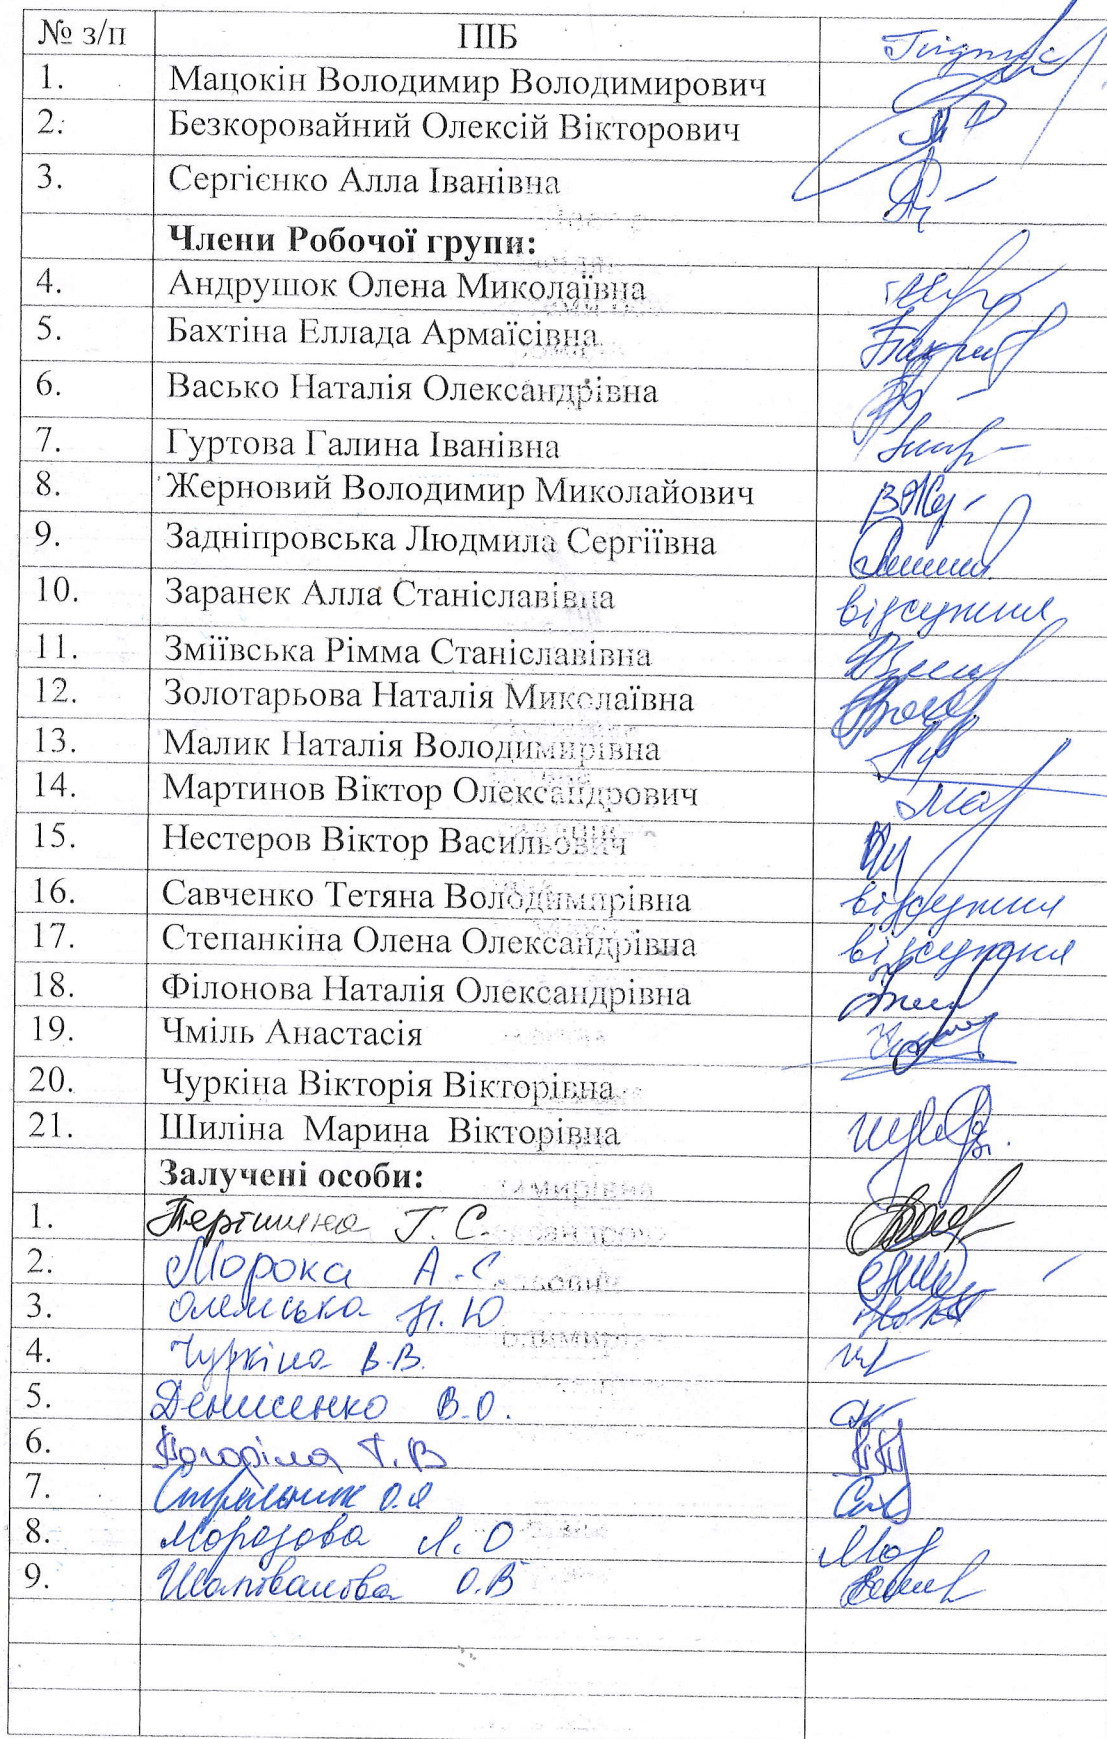 № з/п ПІБ Підпис
1. Мацокін Володимир Володимирович
2. Безкоровайний Олексій Вікторович
3. Сергієнко Алла Іванівна
Члени Робочої групи:
4. Андрушок Олена Миколаївна
5. Бахтіна Еллада Армаїсівна
6. Васько Наталія Олександрівна
7. Гуртова Галина Іванівна
8. Жерновий Володимир Миколайович
9. Задніпровська Людмила Сергіївна
10. Заранек Алла Станіславівна відсутня
11. Зміївська Рімма Станіславівна
12. Золотарьова Наталія Миколаївна
13. Малик Наталія Володимирівна
14. Мартинов Віктор Олександрович
15. Нестеров Віктор Васильович
16. Савченко Тетяна Володимирівна відсутня
17. Степанкіна Олена Олександрівна відсутня
18. Філонова Наталія Олександрівна
19. Чміль Анастасія
20. Чуркіна Вікторія Вікторівна
21. Шиліна Марина Вікторівна
Залучені особи:
1. Г. С.
2. Морока А.С.
3. Ю
4. Чуркіна В.В.
5. Денисенко В.О.
6. Погоріла Т. В
7. Стрільник О.Я
8. Морозова Л. О
9. О.В